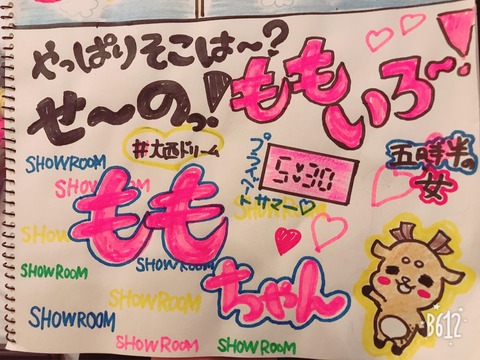 やっぱりそこは〜？
せ〜のっ！ももいろ〜！
#大西ドリーム
プライベート
サマー♡
5:30
五時半の
女
SHOWROOM
SHOWROOM
もも
SHOWROOM
SHOWROOM
SHOWROOM
ちゃん
SHOWROOM
SHOWROOM
SHOWROOM
SHOWROOM
B612